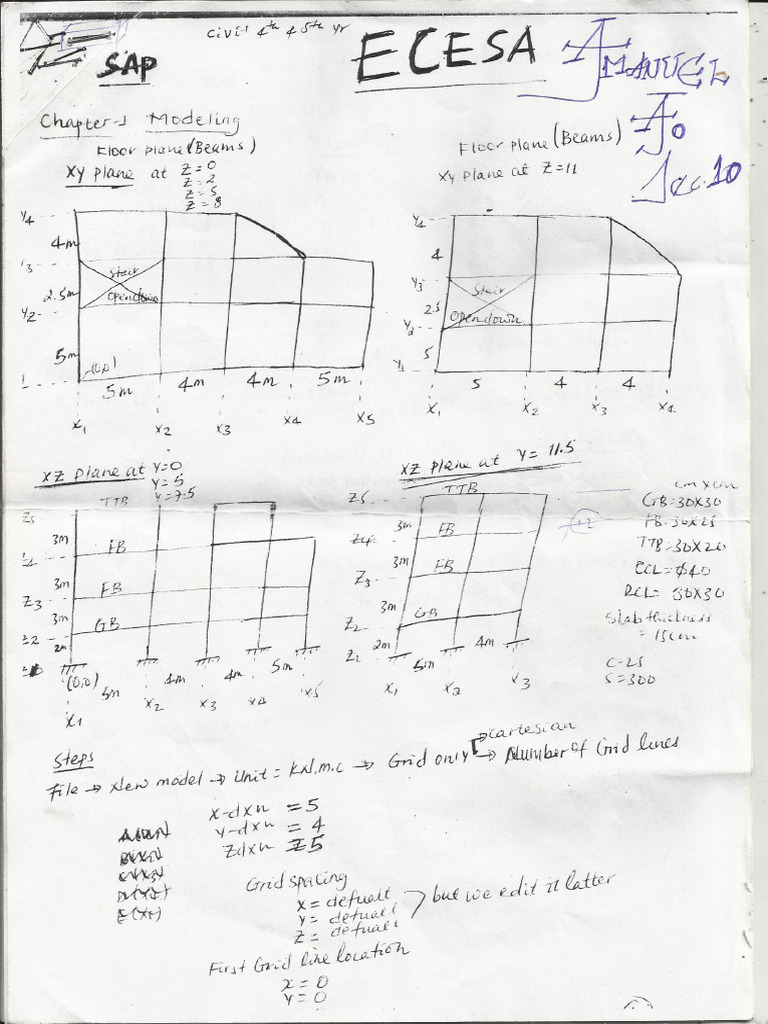 Civil 4th & 5th yr
SAP
ECESA
AMANUEL
Jo
Sec.10
Chapter-1 Modeling
Floor plane (Beams)
XY plane at Z=0
Z=2
Z=5
Z=8
Floor plane (Beams)
XY plane at Z=11
Y4
4m
Y3
Stair
Opendown
2.5m
Y2
5m
(0,0)
5m 4m 4m 5m
X1 X2 X3 X4 X5
Y4
4
Y3
Stair
2.5
Opendown
Y2
5
Y1
5 4 4
X1 X2 X3 X4
XZ plane at Y=0
Y=5
Y=7.5
TTB
3m FB
3m FB
Z3
3m GB
Z2
2m
(0,0)
5m 4m 4m 5m
X1 X2 X3 X4 X5
XZ plane at Y= 11.5
Z5 TTB
3m FB
Z4
3m FB
Z3
3m GB
Z2
2m
Z1
5m 4m
X1 X2 X3
cm x cm
GB=30X30
FB=30X25
TTB=30X20
ECL=Ø40
RCL= 30X30
Slab thickness
= 15cm
C-25
S=300
Steps
File → New model → Unit = KN.m.c → Grid only → Number of Grid lines
cartesian
X-dxn = 5
Y-dxn = 4
Zdxn = 5
Grid spacing
X = defualt
Y = defualt
Z = defualt
but we edit it latter
First Grid line location
X = 0
Y = 0